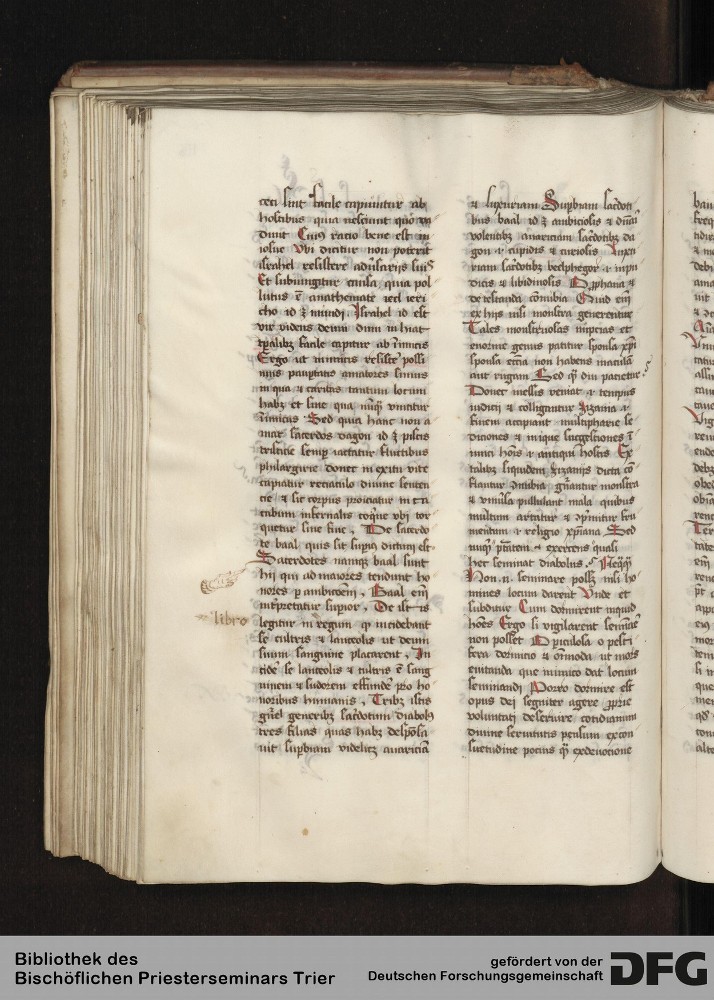 ceci sūt facile capiuntur ab
hostibus quia nesciunt quo va
dunt Cuiꝰ racio bene est in
iosue Vbi dicitur non poterit
israhel resistere adūsarijs suis
Et subiungitur causa, quia pol
lutus ē anathemate
cho id ꝫ mundi. Israhel id est
vir videns deum dum in hiat
tꝑalibꝫ facile capitur ab inimicis
Ergo ut inimicis resistere possi
mꝰ paupertatis amatores simus
in qua et caritas tantum locum
habꝫ et sine qua nūqꝫ vincitur
inimicus Sed quia hanc non a
mat sacerdos dagon id ꝫ piscis
tristicie semꝑ iactatur fluctibus
philargirie donec in exitu vite
capiatur reciaculo diuine senten
cie ⁊ sic corpus proiciatur in ca
cabum infernalis coq̄ue vbi tor
quetur sine fine, De sacerdo
te baal quis sit suꝑius dictum est
Sacerdotes namqꝫ baal sunt
hij qui ad maiores tendunt ho
nores ꝑ ambicoēm, Baal em̄
int̄pretatur suꝑior, De istis
libro legitur in regum qꝫ incidebant
se cultris ⁊ lanceolis ut deum
suum sanguine placarent, In
cidere se lanceolis ⁊ cultris ē sang
uinem ⁊ sudorem effundere pro ho
noribus humanis, Tribꝫ istis
gn̄el generibꝫ sac̄dotum diabolꝰ
tres filias quas habꝫ desponsa
uit suꝑbiam videlicꝫ auariciā
⁊ luxuriam Suꝑbiam sac̄doti
bus baal id ꝫ ambiciosis ⁊ diuiciā
volentibꝫ auariciam sac̄dotibꝫ da
gon ⁊ cupidis ⁊ curiosis luxu
riam sac̄dotibꝫ beelphegor ⁊ inpu
dicis ⁊ libidinosis O ꝓphana ⁊
detestanda cōnubia Quid em̄
ex hijs nisi monstra generentur
Tales monstruosas nupcias et
enorme genus patitur sponsa xp̄i
sponsa ecc̄ia non habens maculā
aut rugam Sed qꝫ diu patietur
Donec messis veniat ⁊ tempus
iudicij ⁊ colligantur zizania ⁊
finem accipiant multipharie se
diciones ⁊ inique suggestiones ī
imici hoīs ⁊ antiqui hostis Ex
talibꝫ siquidem zizanijs dicta cō
flantur ꝯnubia gn̄antur monstra
⁊ venīla pullulant mala quibus
multum artatur ⁊ opprimitur fru
mentum ⁊ religio xp̄iana Sed
nūqꝫ ⁊ exercens quasi
hec seminat diabolus, Neqqꝫ
Non .n. seminare possꝫ nisi ho
mines locum darent Vnde et
subditur Cum dormirent inquid
hoīes Ergo si vigilarent semīare
non posset O ꝑiculosa o pesti
fera dormicio ⁊ om̄oda ut mors
euitanda que inimico dat locum
seminandi Porro dormire est
opus dei segniter agere ꝓprie
voluntati deseruire cotidianum
diuine seruitutis pensum ex con
suetudine pocius qꝫ ex deuocione
Bibliothek des
Bischöflichen Priesterseminars Trier
gefördert von der
Deutschen Forschungsgemeinschaft DFG